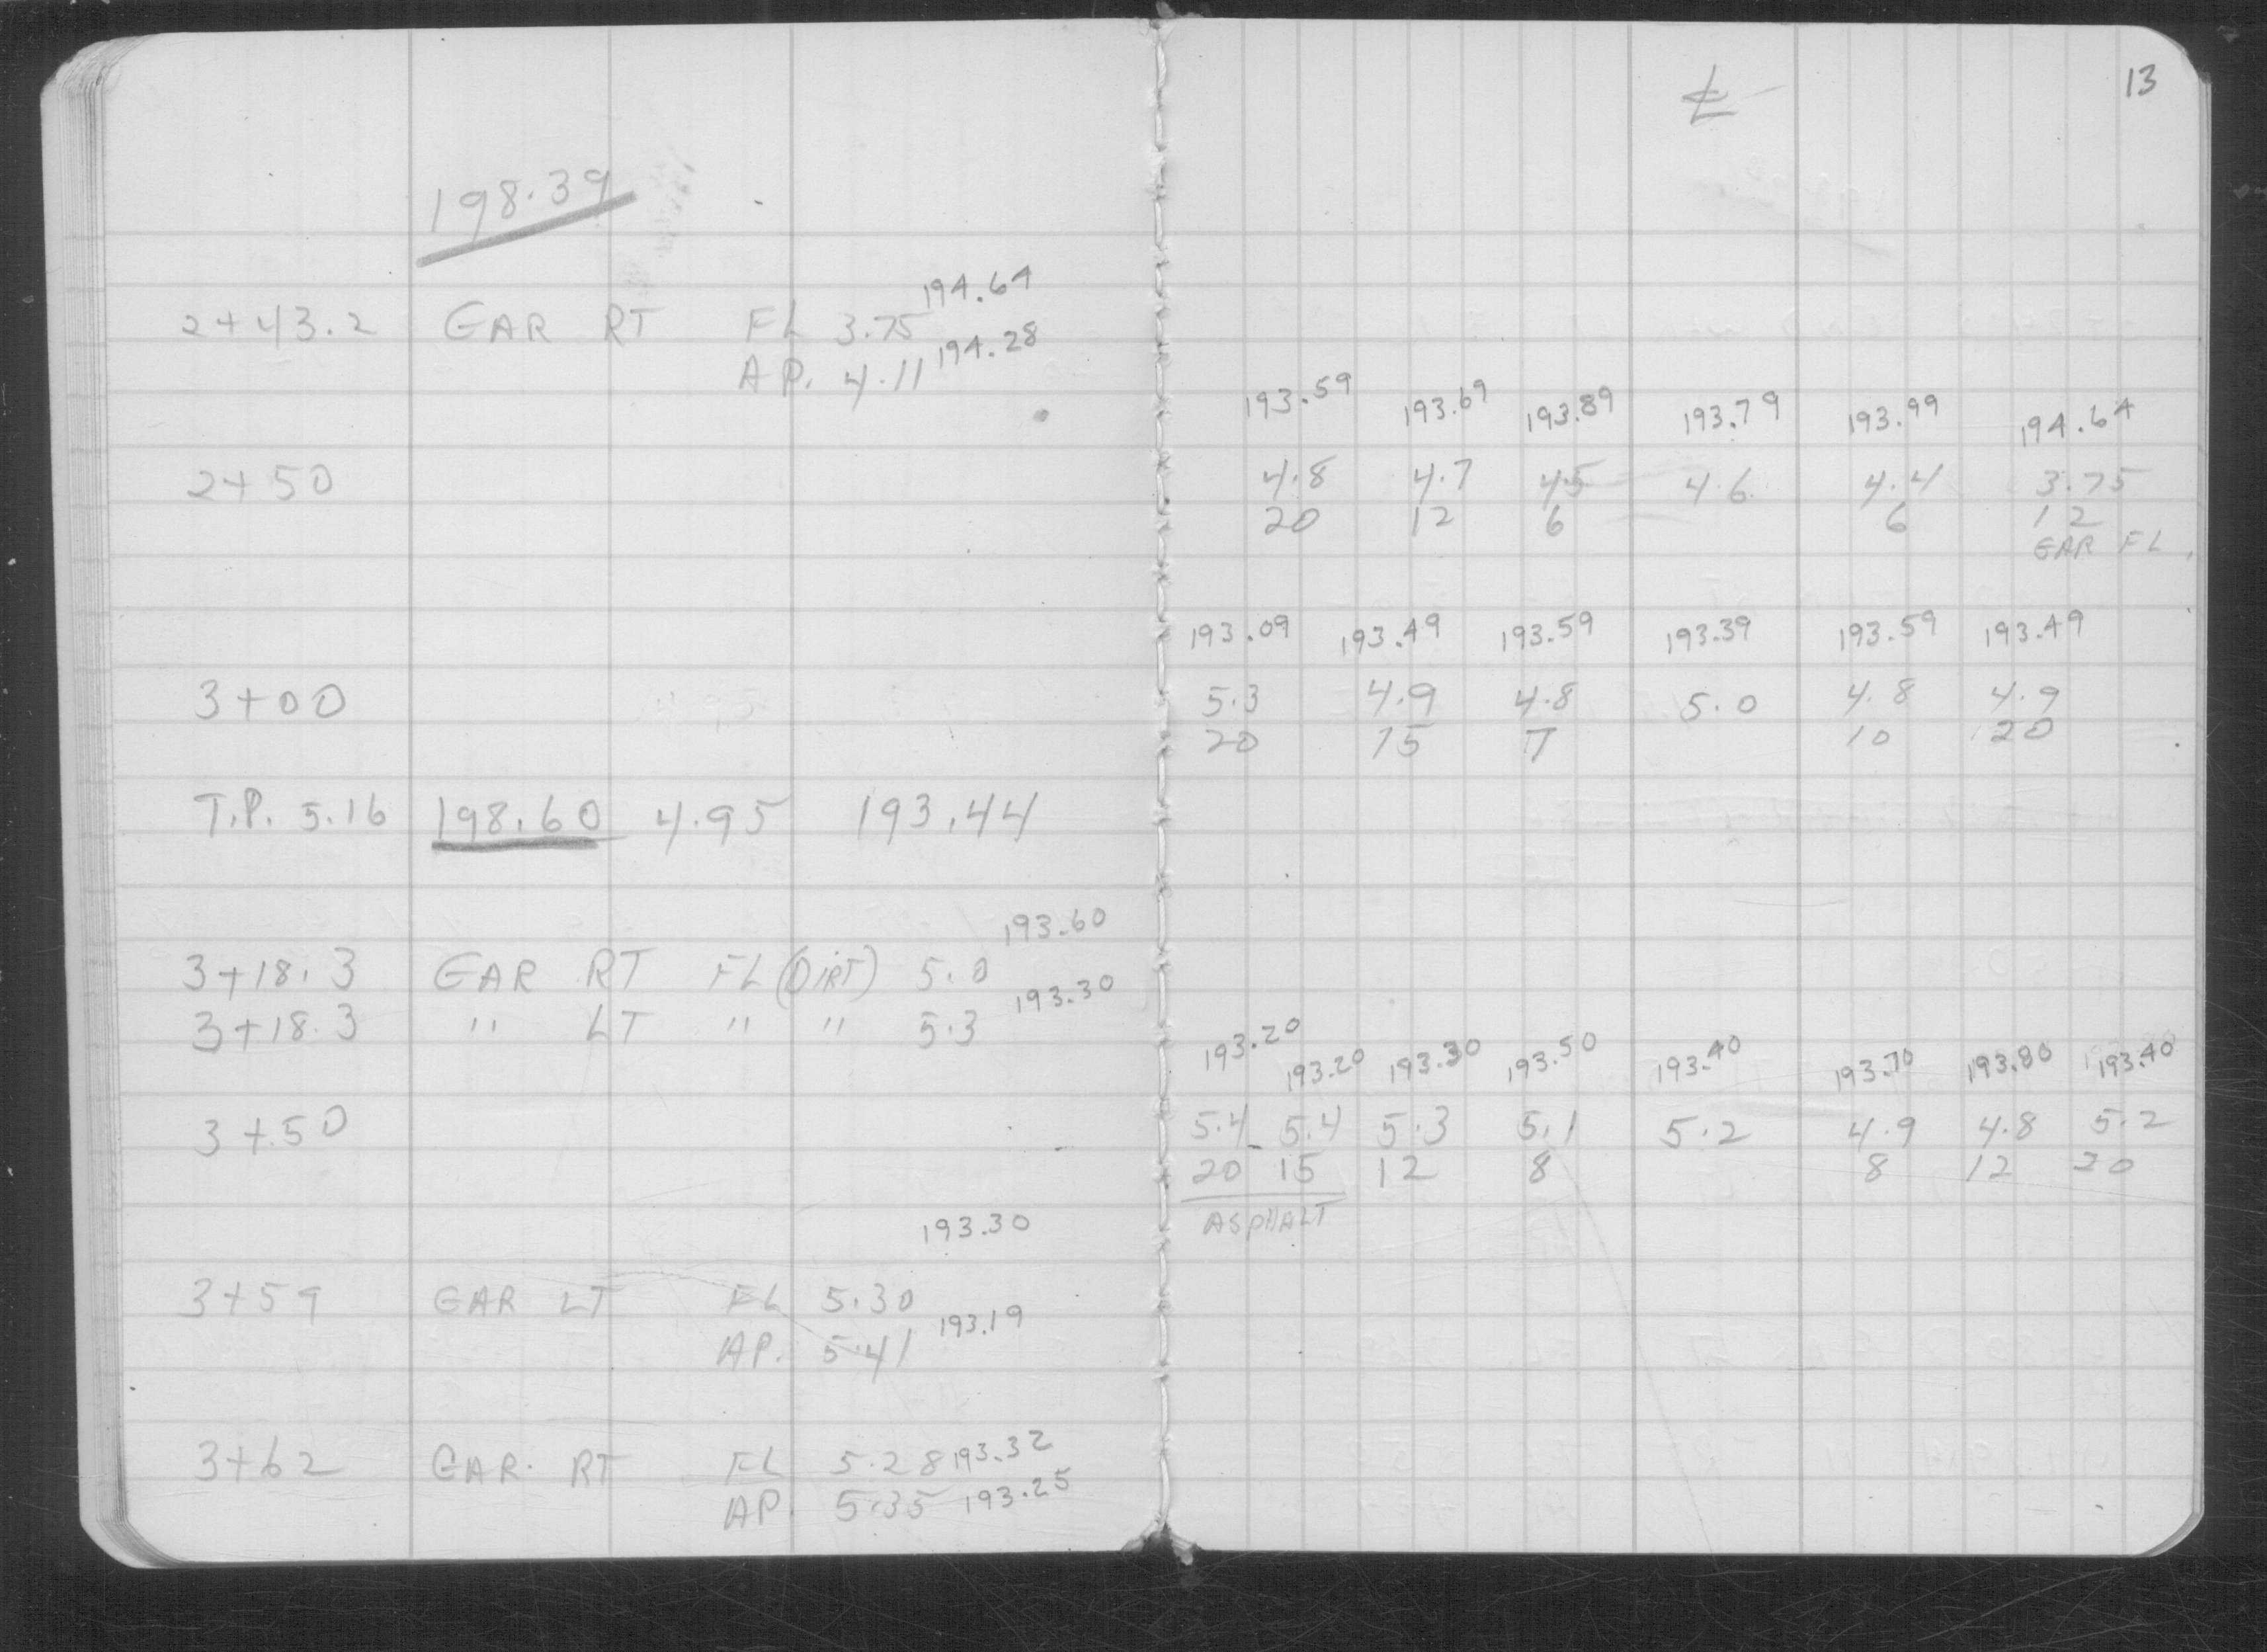 13
℄
198.39
194.64
2+43.2 GAR RT FL 3.75
AP. 4.11 194.28
193.59 193.69 193.89 193.79 193.99 194.64
2+50 4.8 4.7 4.5 4.6 4.4 3.75
20 12 6 6 12
GAR FL
193.09 193.49 193.59 193.39 193.59 193.49
3+00 5.3 4.9 4.8 5.0 4.8 4.9
20 15 7 10 20
T.P. 5.16 198.60 4.95 193.44
193.60
3+18.3 GAR RT FL (DIRT) 5.0
3+18.3 " LT " " 5.3 193.30
193.20 193.20 193.30 193.50 193.40 193.70 193.80 193.40
3+50 5.4 5.4 5.3 5.1 5.2 4.9 4.8 5.2
20 15 12 8 8 12 20
ASPHALT
193.30
3+59 GAR LT FL 5.30
AP. 5.41 193.19
3+62 GAR. RT FL 5.28 193.32
AP. 5.35 193.25